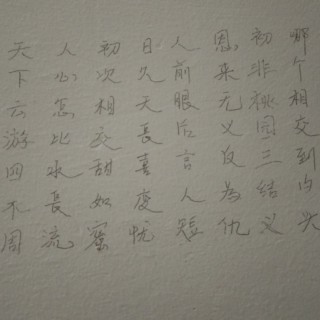 天下云游四不周
人心怎比水長流
初次相交甜如蜜
日久天長喜度忧
人前眼后言人短
恩来无义反為仇
初非桃园三结义
哪个相交到白头